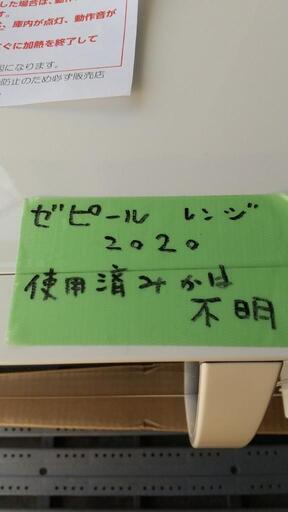 した場合は、動作
す。
庫内が点灯、動作音が
ぐに加熱を終了して
になります。
防止のため必ず販売店
ゼピール レンジ
2020
使用済みかは
不明